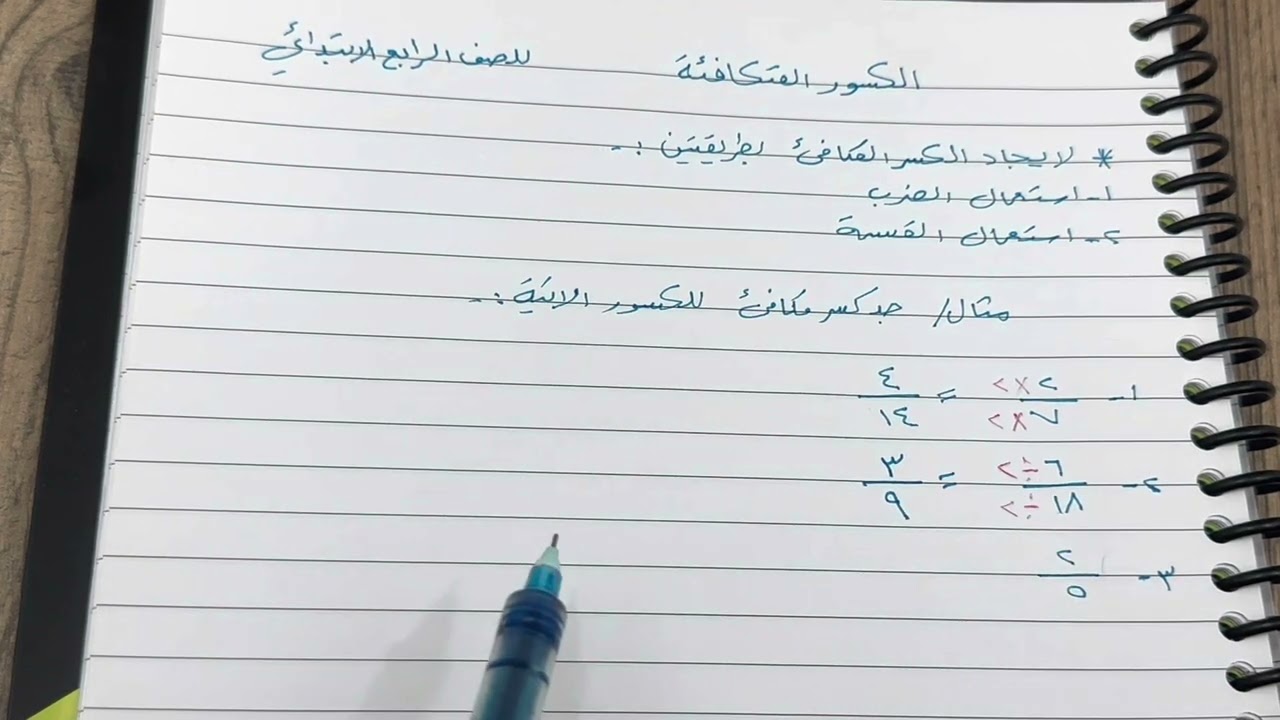 الكسور المتكافئة للصف الرابع الابتدائي
* لايجاد الكسر المكافئ بطريقتين :-
١- استعمال الضرب
٢- استعمال القسمة
مثال/ جد كسر مكافئ للكسور الاتية :-
١- ٢×٢ / ٧×٢ = ٤ / ١٤
٢- ٦÷٢ / ١٨÷٢ = ٣ / ٩
٣- ٢ / ٥